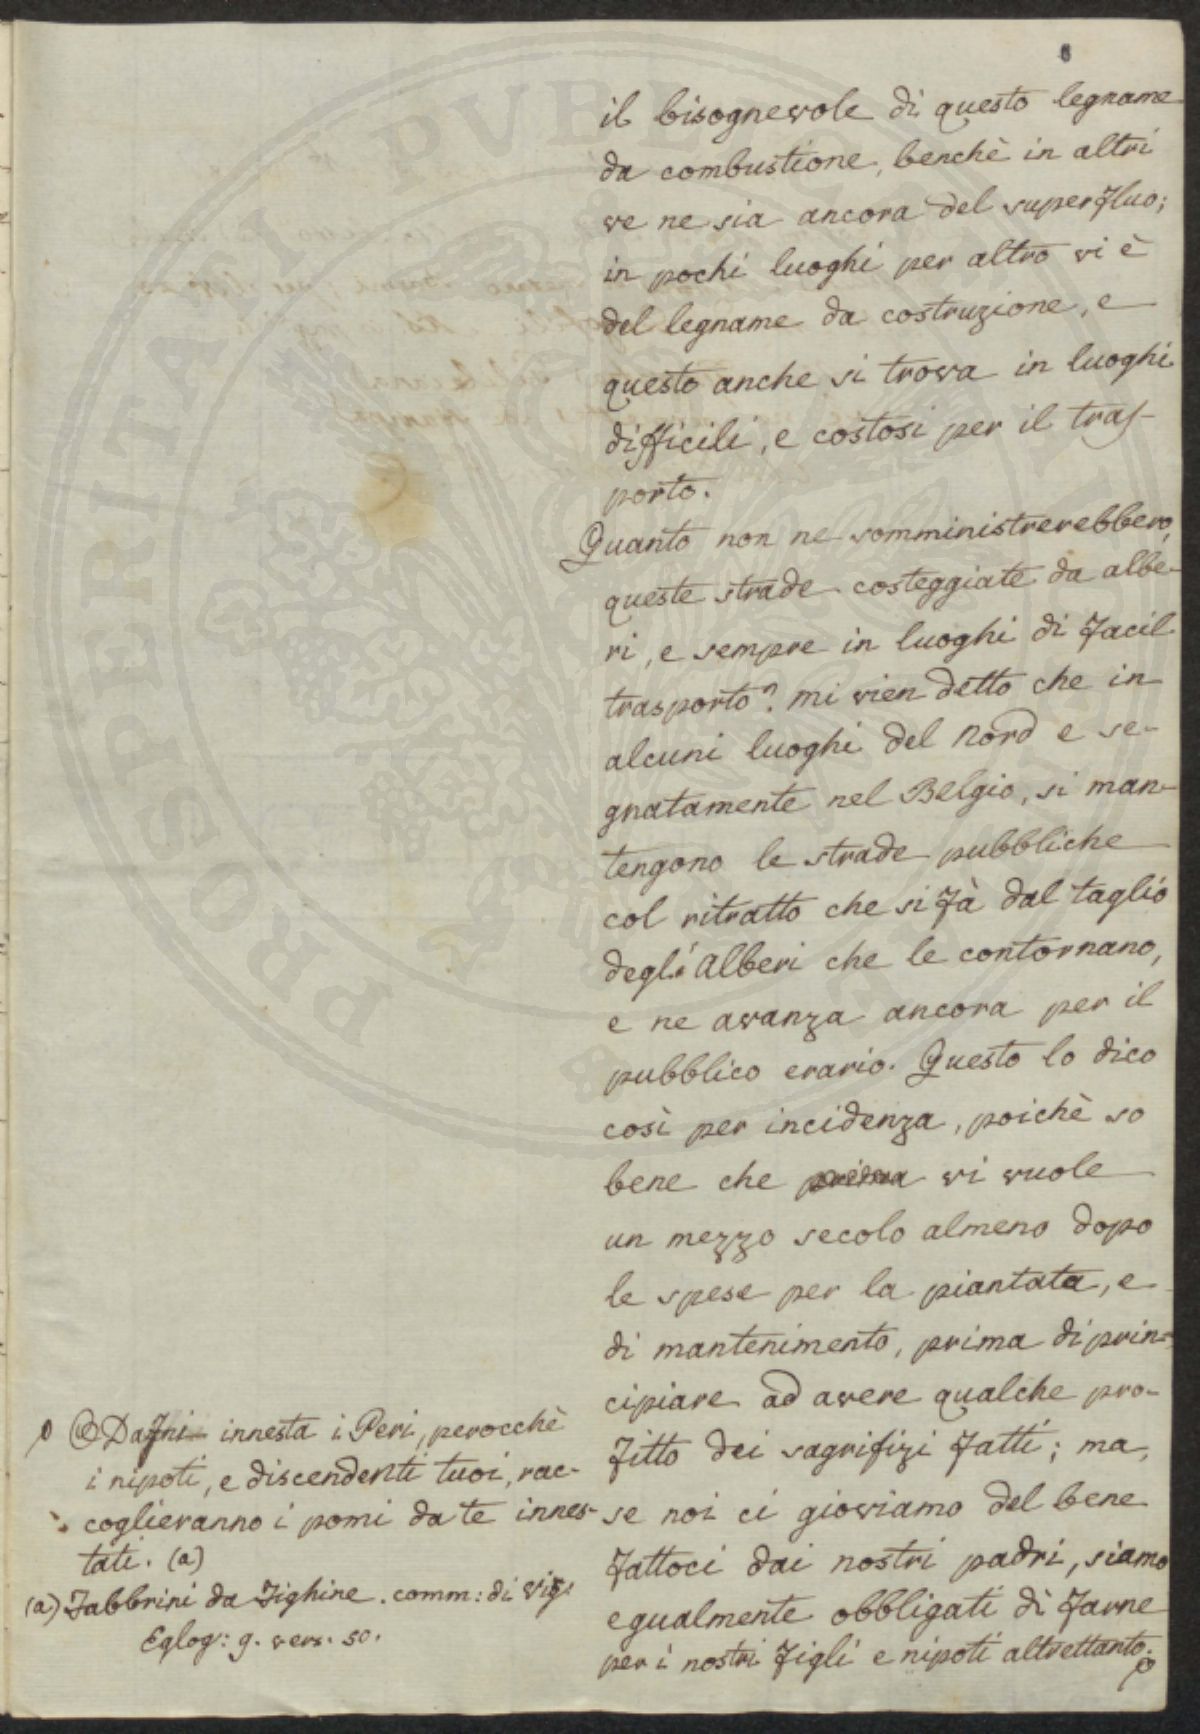 il bisognevole di questo legname
da combustione, benchè in altri
ve ne sia ancora del superfluo;
in pochi luoghi per altro vi è
del legname da costruzione, e
questo anche si trova in luoghi
difficili, e costosi per il tras-
porto.
Quanto non ne somministrerebbero
queste strade costeggiate da albe-
ri, e sempre in luoghi di facil
trasporto? mi vien detto che in
alcuni luoghi del Nord e se-
gnatamente nel Belgio, si man-
tengono le strade pubbliche
col ritratto che si fà dal taglio
degli Alberi che le contornano,
e ne avanza ancora per il
pubblico erario. Questo lo dico
così per incidenza, poichè so
bene che prima vi vuole
un mezzo secolo almeno dopo
le spese per la piantata, e
di mantenimento, prima di prin-
cipiare ad avere qualche pro-
fitto dei sagrifizi fatti; ma,
se noi ci gioviamo del bene
fattoci dai nostri padri, siamo
egualmente obbligati di farne
per i nostri figli e nipoti altrettanto.
O Dafni innesta i Peri, perocchè
i nipoti, e discendenti tuoi, rac-
coglieranno i pomi da te innes-
tati. (a)
(a) Fabbrini da Fighine. comm: di Vig:
Eglog: 9. vers. 50.
PROSPERITATI PVBLICAE